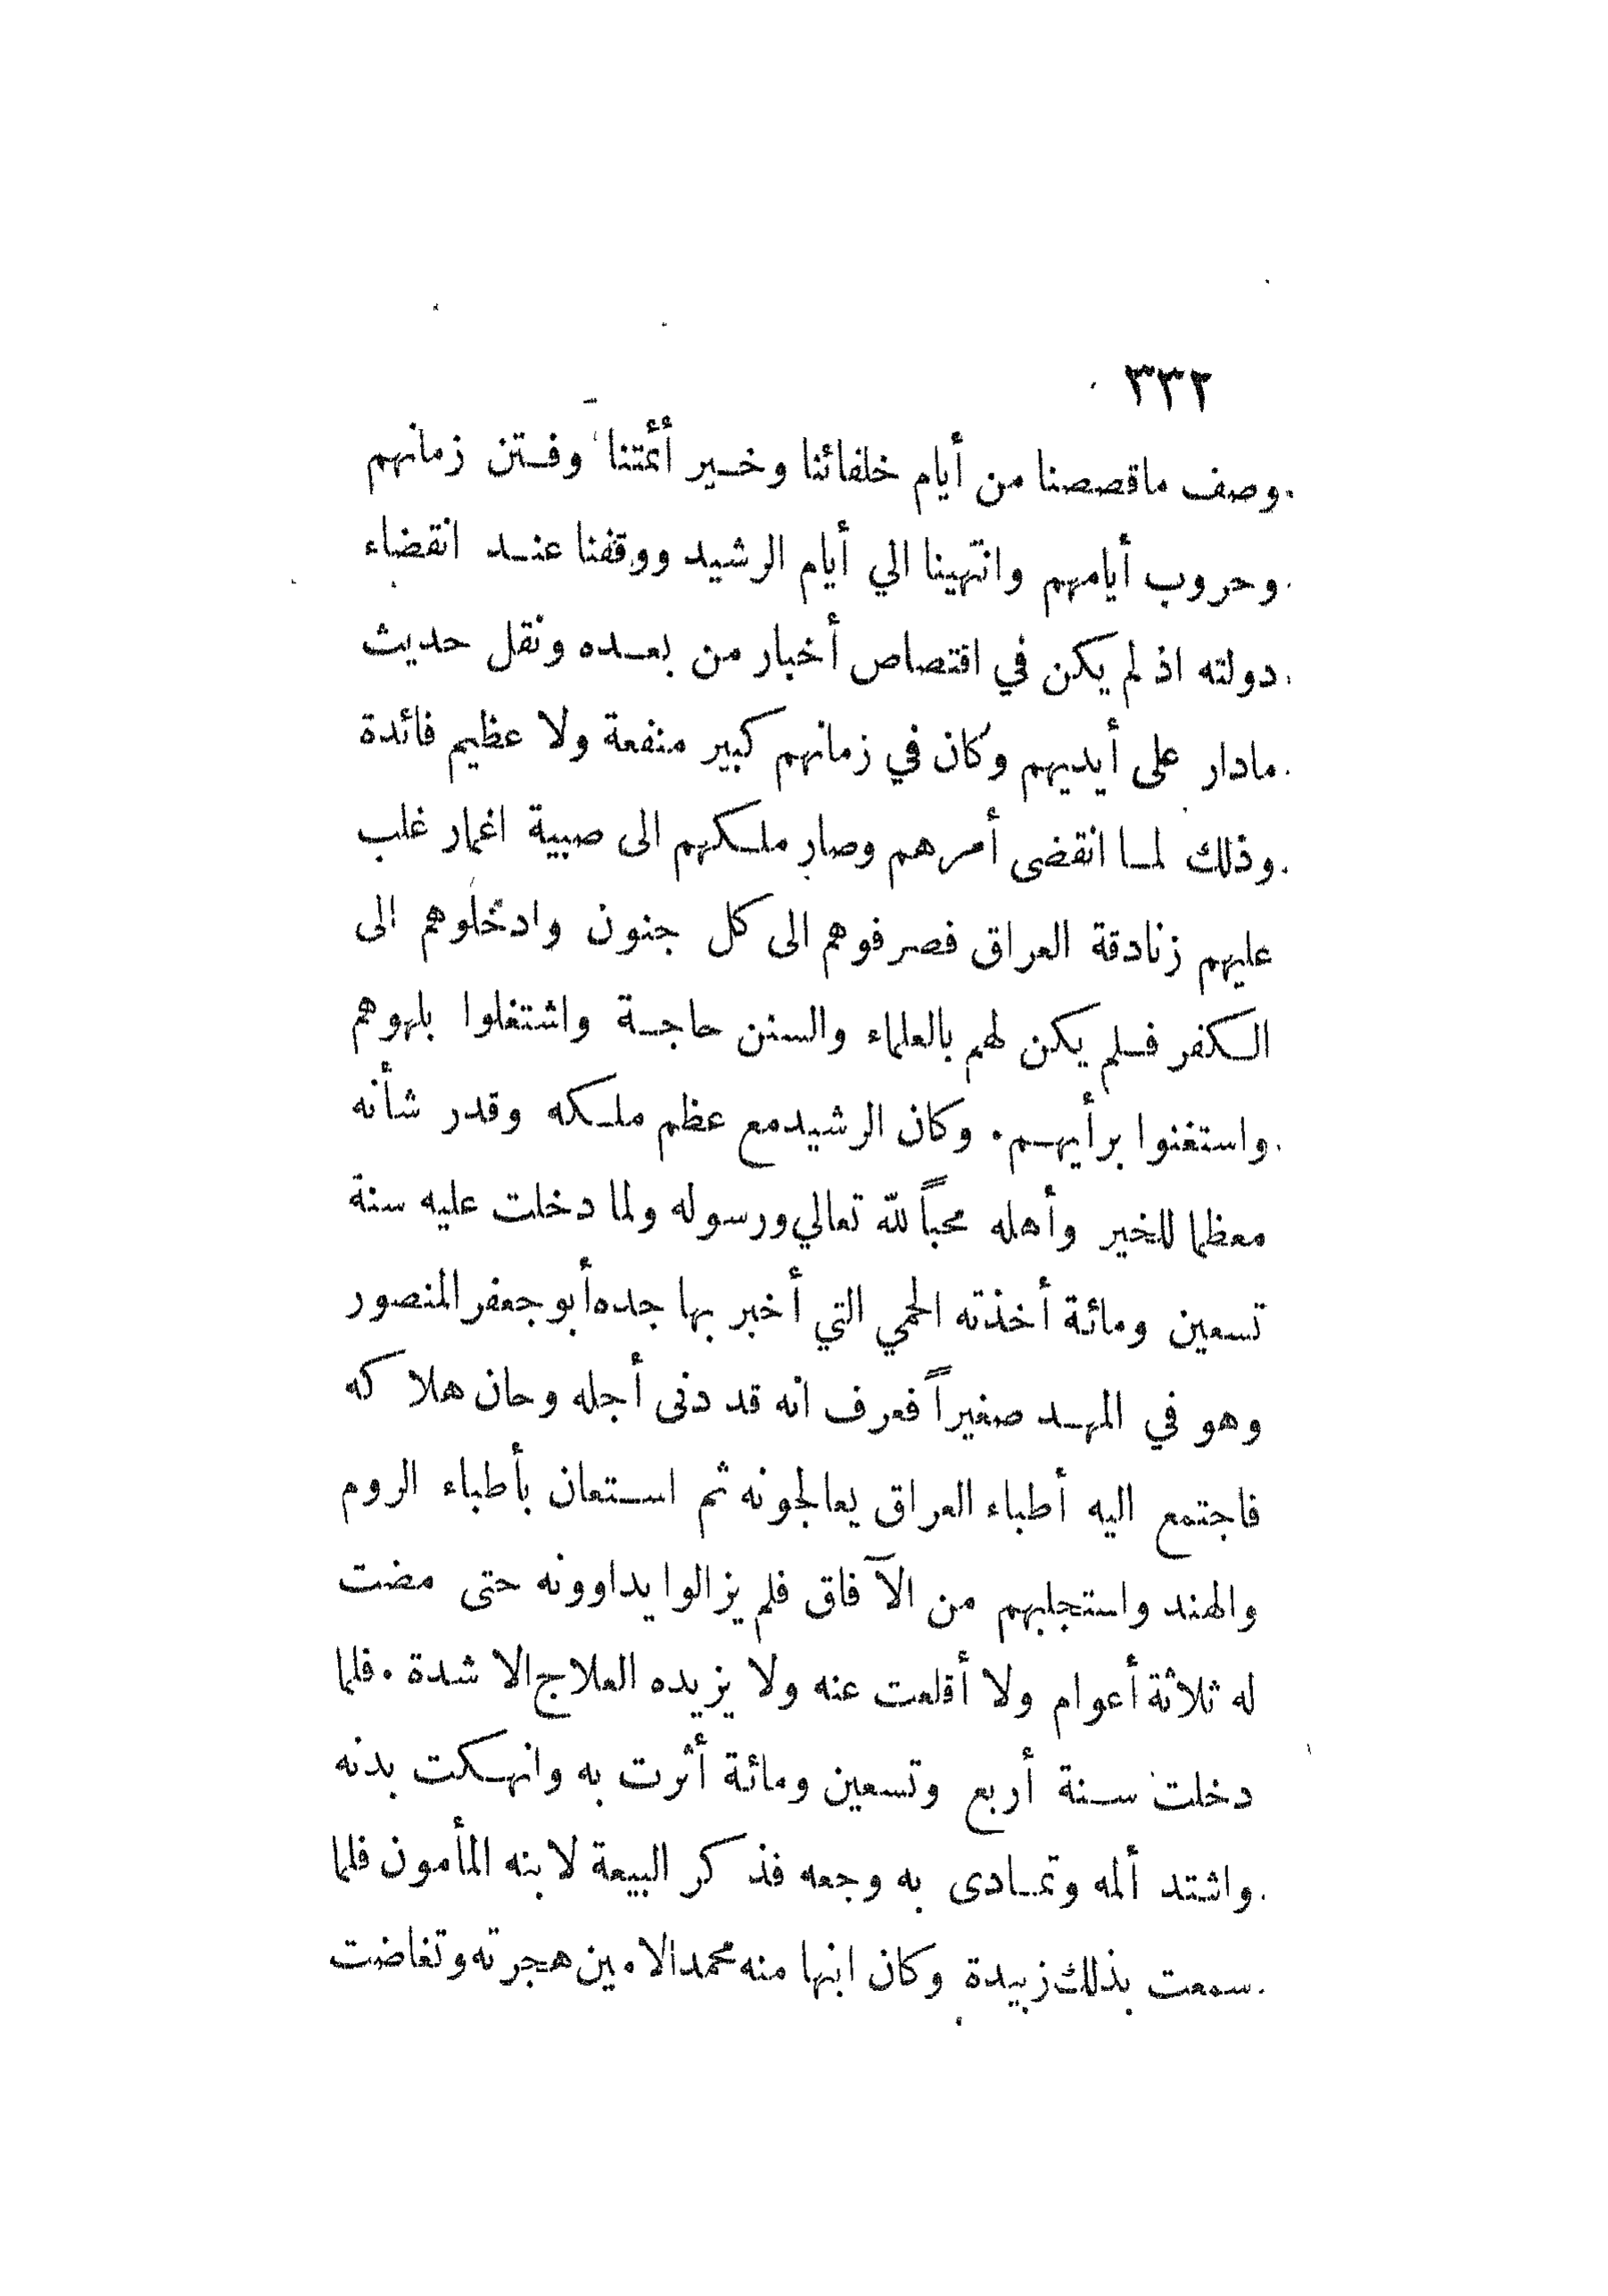 ٣٣٢
وصف ماقصصنا من أيام خلفائنا وخير أئمتنا وفتن زمانهم
وحروب أيامهم وانتهينا الي أيام الرشيد ووقفنا عند انقضاء
دولته اذ لم يكن في اقتصاص أخبار من بعده ونقل حديث
مادار على أيديهم وكان في زمانهم كبير منفعة ولا عظيم فائدة
وذلك لما انقضى أمرهم وصار ملكهم الى صبية اغمار غلب
عليهم زنادقة العراق فصرفوهم الى كل جنون وادخلوهم الى
الكفر فلم يكن لهم بالعلماء والسنن حاجة واشتغلوا بلهوهم
واستغنوا برأيهم . وكان الرشيد مع عظم ملكه وقدر شأنه
معظما للخير وأهله محباً لله تعالي ورسوله ولما دخلت عليه سنة
تسعين ومائة أخذته الحمي التي أخبر بها جده أبو جعفر المنصور
وهو في المهد صغيراً فعرف انه قد دنى أجله وحان هلاكه
فاجتمع اليه أطباء العراق يعالجونه ثم استعان بأطباء الروم
والهند واستجلبهم من الآفاق فلم يزالوا يداوونه حتى مضت
له ثلاثة أعوام ولا أقلعت عنه ولا يزيده العلاج الا شدة . فلما
دخلت سنة أربع وتسعين ومائة أثرت به وانهكت بدنه
واشتد ألمه وتمادى به وجعه فذكر البيعة لابنه المأمون فلما
سمعت بذلك زبيدة وكان ابنها منه محمد الامين هجرته وتغاضت